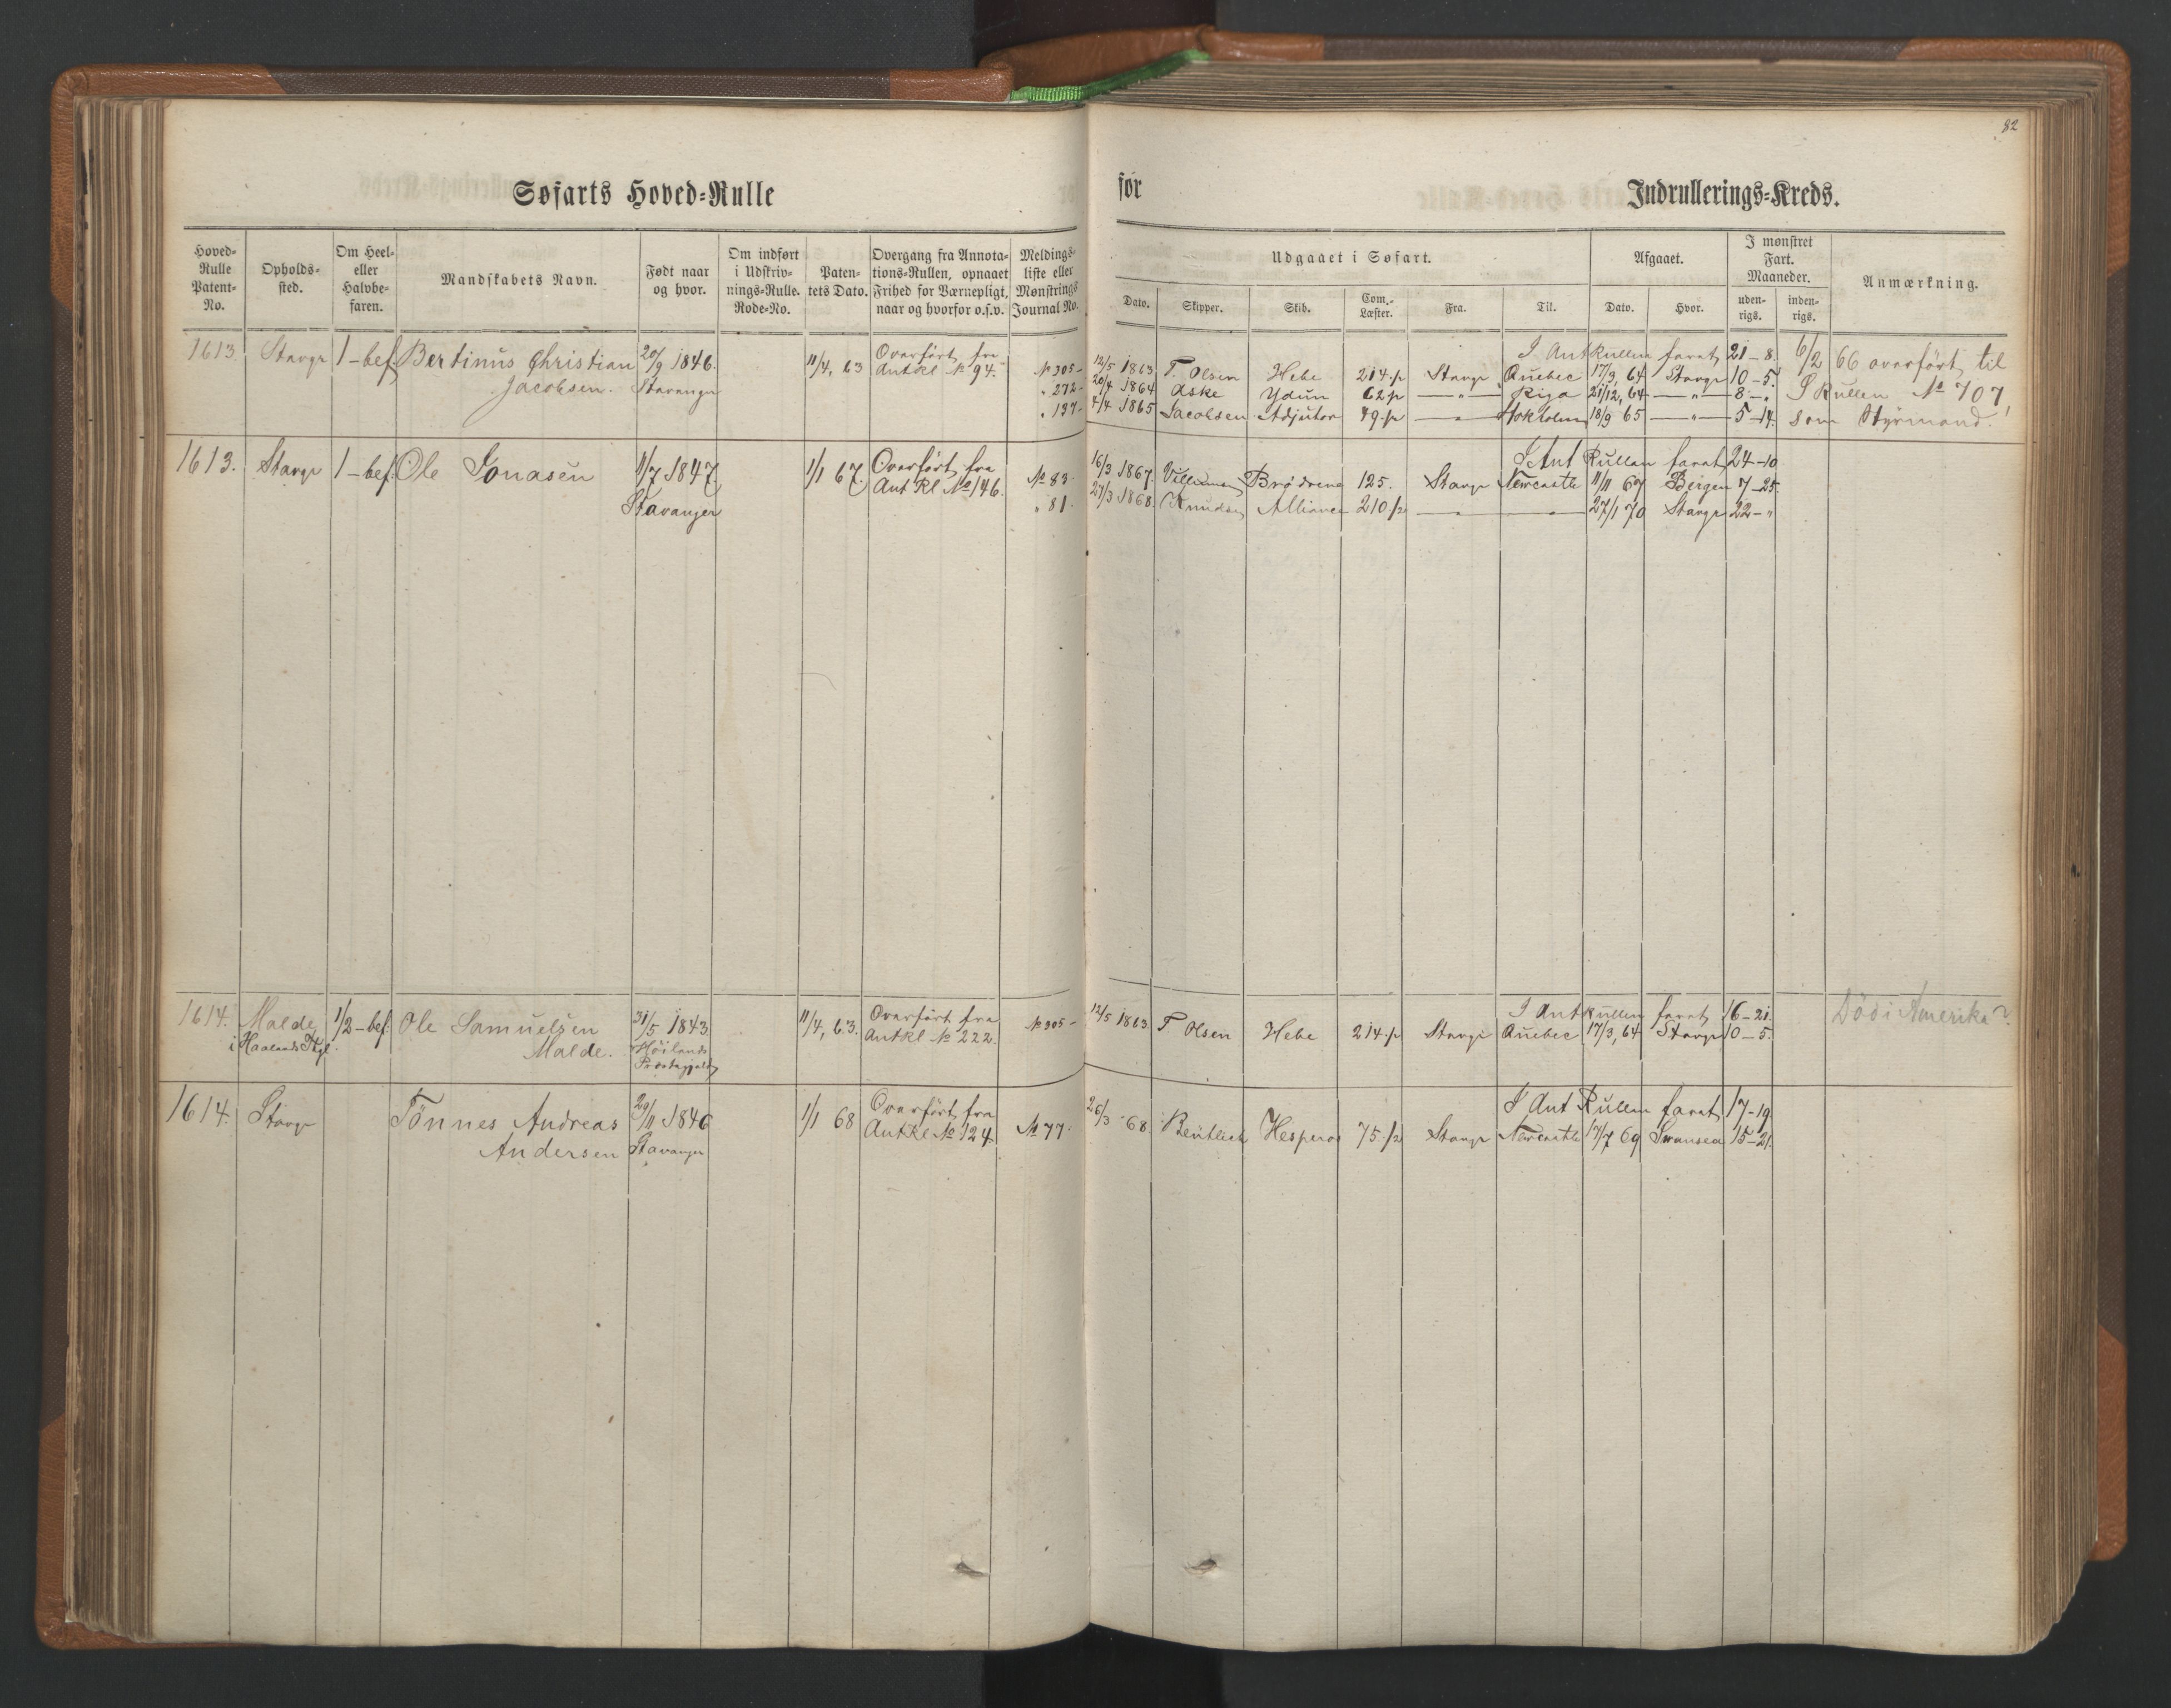 82
Søfarts Hoved-Rulle for Indrullerings-Kreds.
Hoved-Rulle Patent-No.
Opholds-sted.
Om Heel- eller Halvbe-faren.
Mandskabets Navn.
Født naar og hvor.
Om indført i Udskriv-nings-Rulle. Rode-No.
Paten-tets Dato.
Overgang fra Annota-tions-Rullen, opnaaet Frihed for Værnepligt, naar og hvorfor o.s.v.
Meldings-liste eller Mønstrings Journal No.
Udgaaet i Søfart.
Dato. Skipper. Skib. Com.-Læster. Fra. Til.
Afgaaet.
Dato. Hvor.
I mønstret Fart. Maaneder.
uden-rigs. inden-rigs.
Anmærkning.
1613. Stavgr 1-bef Bertinus Christian 20/9 1846. 11/4, 63 Overført fra
Jacobsen. Stavanger Ant Rl № 94.
I Ant Rullen faret 21-8. 6/2 66 overført til
№ 305- 12/5 1863 T. Olsen Hebe 214 p Stavgr Quebec 17/3, 64 Stavgr 10-5. S Rullen № 707
" 272- 20/4 1864 Aske Ydun 62 p —"— Riga 21/12, 64 —"— 8-". som Styrmand.
" 197- 4/4 1865 Jacobsen Adjutor 79 p —"— Stokholm 18/9 65 —"— 5-14.
1613. Stavgr 1-bef. Ole Jonasen 11/7 1847. 1/1 67. Overført fra
Stavanger Ant Rl № 146.
I Ant Rullen faret 24-10
№ 83- 16/3 1867. Villumsen Brødrene 125. Stavgr Newcastle 11/11 67 Bergen 7-25.
" 81. 27/3 1868. Knudsen Alliance 210 1/2 —"— —"— 27/1 70 Stavgr 22-"
1614. Malde 1/2-bef. Ole Samuelsen 31/5 1843. 11/4, 63. Overført fra
i Haalands Thgl. Malde. Høilands Ant Rl № 222.
Præstegjeld
I Ant Rullen faret 16-21. Död i Amerika?
№ 305- 12/5 1863 T Olsen Hebe 214 p Stavgr Quebec 17/3, 64 Stavgr 10-5.
1614. Stavgr Tönnes Andreas 29/11 1846 1/1 68 Overført fra
Andersen Stavanger Ant Rl № 124.
I Ant Rullen faret 17-19
№ 77. 26/3 68. Beutlich Hesperos 75 1/2 Stavgr Newcastle 17/7 69 Swansea 15-21.